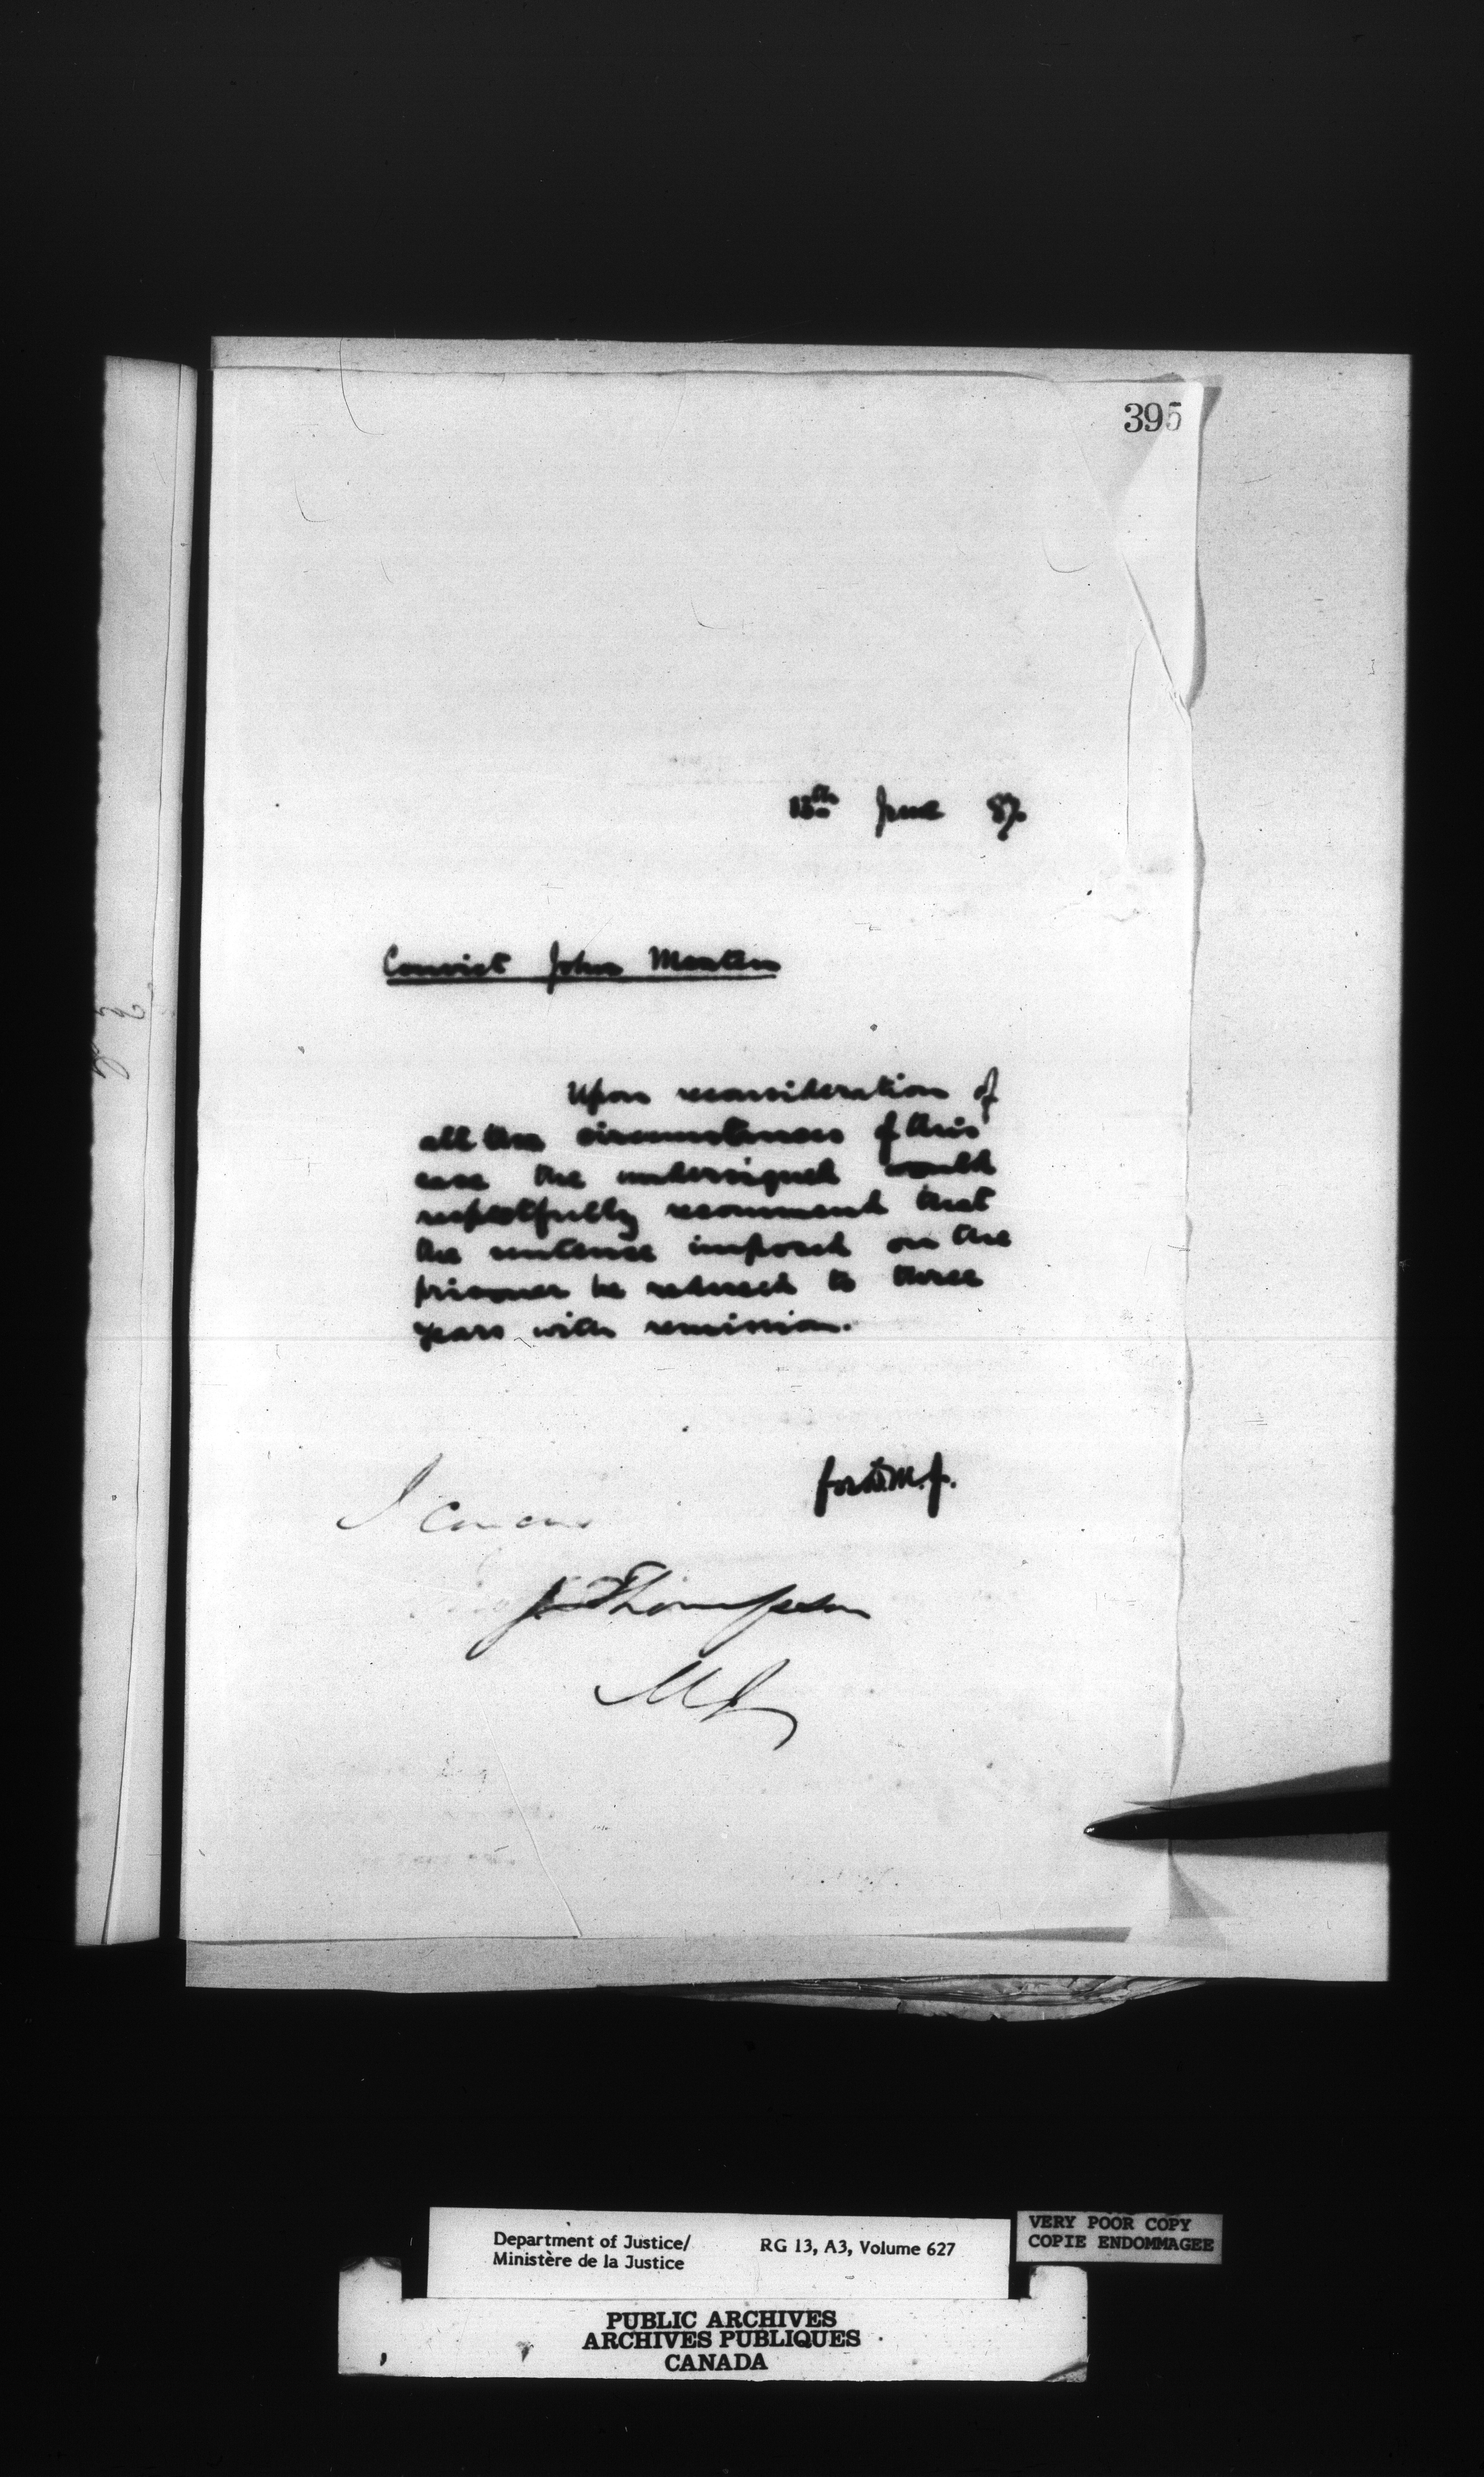 395
13th June 87.
Convict John
Upon reconsideration of
all the circumstances of this
case the undersigned would
respectfully recommend that
the sentence imposed on the
prisoner be reduced to three
years with remission.
for D.M.J.
I concur
J Thompson
MJ
Department of Justice/
Ministère de la Justice
RG 13, A3, Volume 627
VERY POOR COPY
COPIE ENDOMMAGEE
PUBLIC ARCHIVES
ARCHIVES PUBLIQUES
CANADA